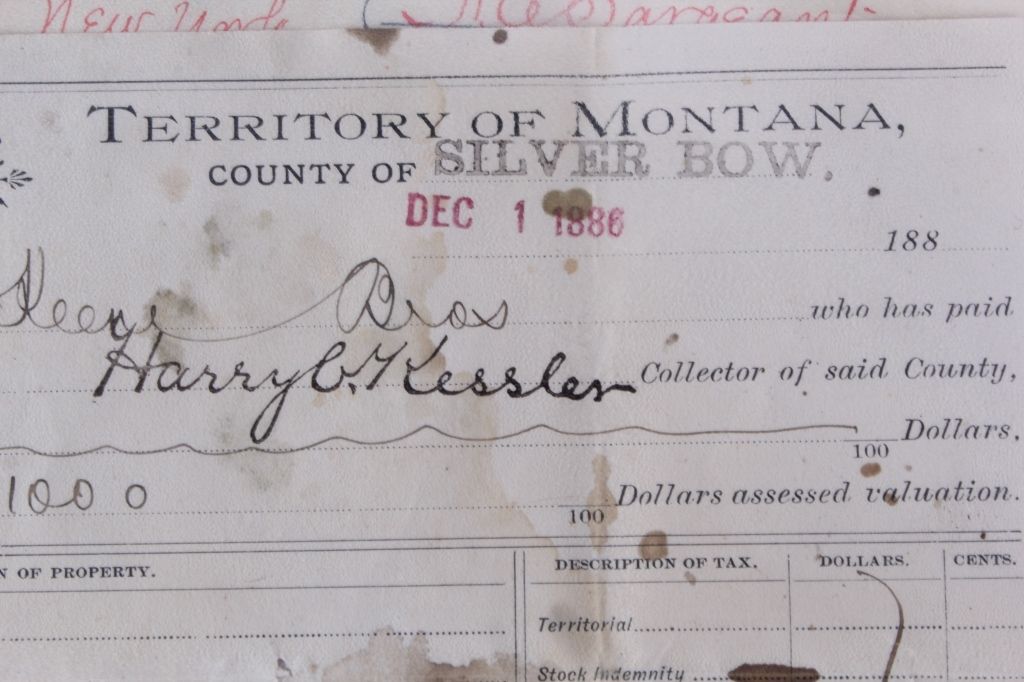 New York
TERRITORY OF MONTANA,
COUNTY OF SILVER BOW.
DEC 1 1886
188
Bros who has paid
Harry C. Kessler Collector of said County,
100 Dollars,
1000 100 Dollars assessed valuation.
N OF PROPERTY. DESCRIPTION OF TAX. DOLLARS. CENTS.
Territorial
Stock Indemnity